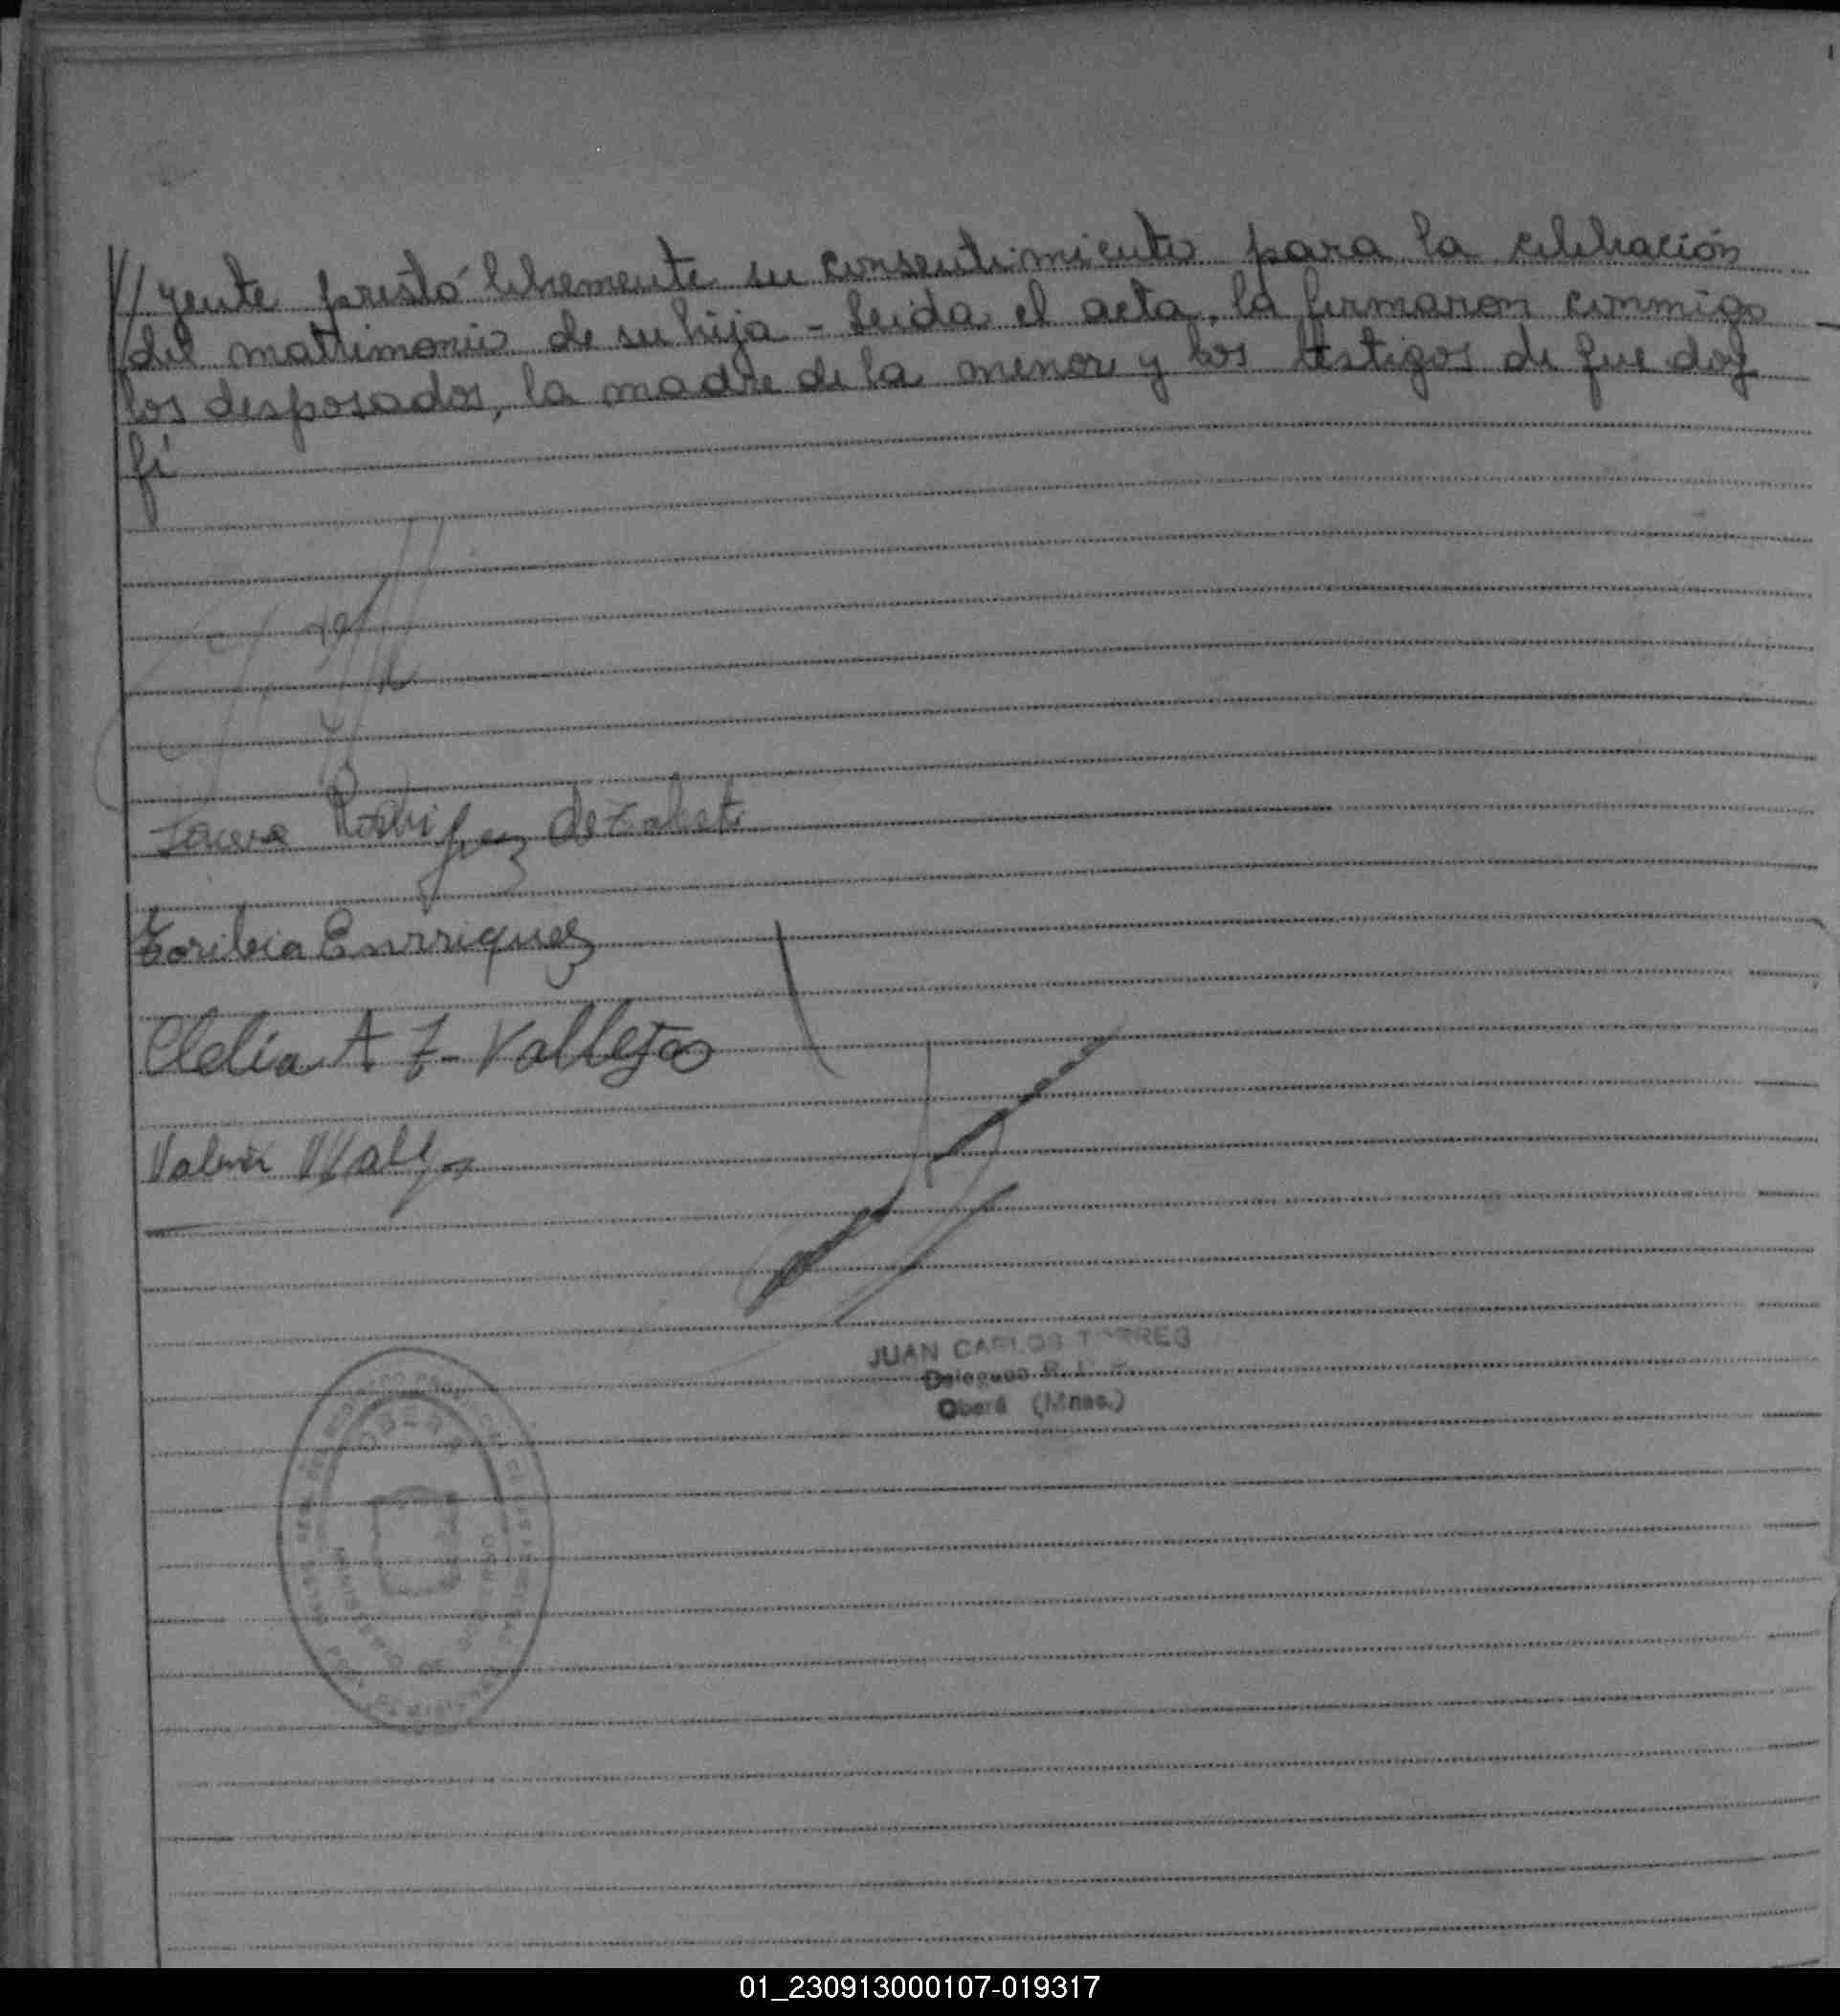 //yente prestó libremente su consentimiento para la celebración
del matrimonio de su hija - Leida el acta, la firmaron conmigo
los desposados, la madre de la menor y los testigos de que doy
fé
Rodriguez de Zabet
Toribia Enrriquez
Clelia A F- Vallejos
JUAN CARLOS TORRES
Delegado R.
Oberá (Mnes.)
OBERA
MINISTERIO DE GOBIERNO
01_230913000107-019317